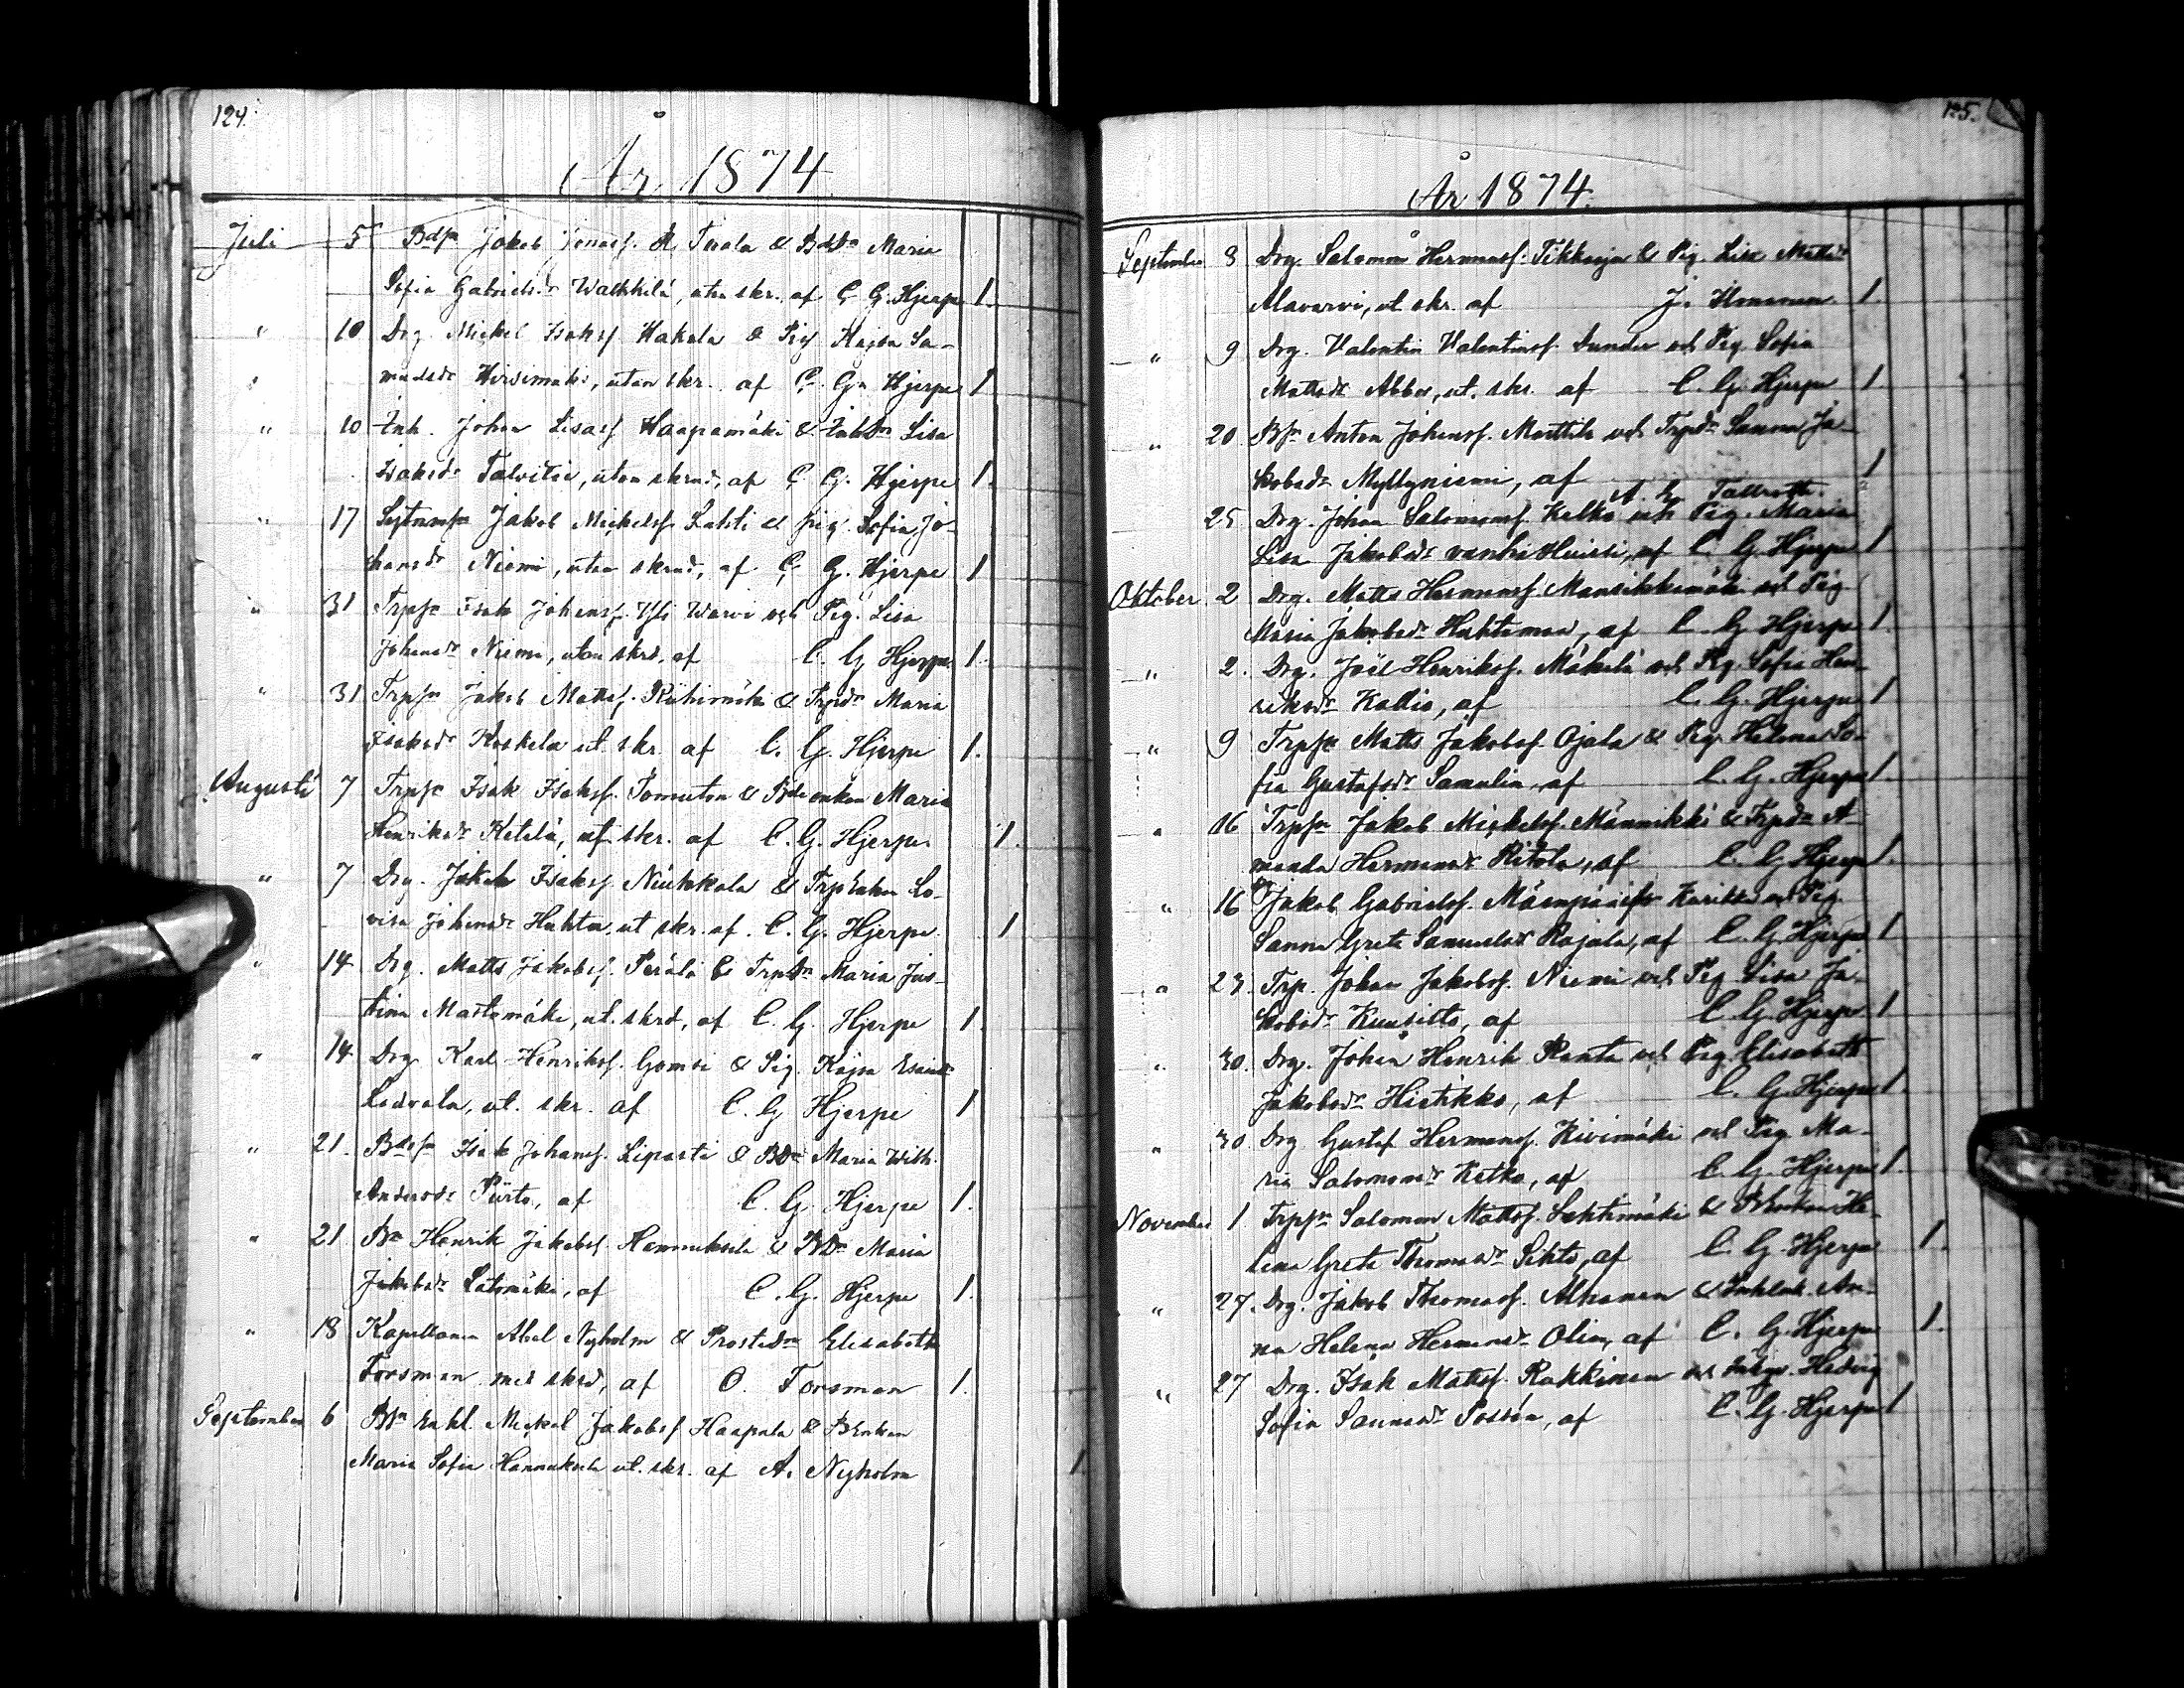 124.
År 1874
Juli 5 Bdsn Jakob Jonasf. Perala & Bddr Maria
Sofia Gabrielsdr Walkkilä, utan skr. af C G. Hjerpe 1.
" 10 Drg Mickel Isaksf. Hakala & Pig Kajsa Sa-
muelsdr Hirsimäki, utan skr. af C. G. Hjerpe 1
" 10 Inh. Johan Lisasf Haapamäki & Lisa
Isaksdr Talvitie, utan skrud, af C G. Hjerpe 1.
" 17 Jakob Mickelsf Lahti & pig. Sofia Jo-
hansdr Niemi, utan skrud, af C G. Hjerpe 1
" 31 Trpsn Isak Johansf. Warvi och Pig. Lisa
Johansdr Niemi, utan skrd. af C. G Hjerpe 1.
" 31 Trpsn Jakob Mattsf. Riihimäki & Trpdr Maria
Isaksdr Koskela ut. skr. af C. G. Hjerpe 1.
Augusti 7 Trpsn Isak Isaksf. & enkan Maria
Henriksdr Ketelä, ut. skr. af C. G. Hjerpe 1.
" 7 Drg. Jakob Isaksf. & Trpenkan Lo-
visa Johansdr Huhta, ut skr. af. C. G. Hjerpe 1
" 14 Drg. Matts Jakobsf. Perälä & Trpdr Maria Jus-
tina Martomäki, ut. skrd, af C. G. Hjerpe 1.
" 14 Drg. Karl Henriksf. Gomsi & Pig. Kajsa
Ladvala, ut. skr. af C. G Hjerpe 1
" 21. Bdsn Isak Johansf. Liparti & Bdr Maria Wilh.
Andersdr Piirto, af C. G. Hjerpe 1.
" 21 Bn Henrik Jakobsf. Hannuksela & Bdr Maria
Jakobsdr Latomäki, af C. G. Hjerpe 1.
" 18 Kapellanen Abel Nyholm & Prostedn Elisabeth
Forsman med skrd, af O. Forsman 1.
September 6 Bn enkl. Mickel Jakobsf Haapala & Benkan
Maria Sofia Hannuksela ut. skr. af A. Nyholm 1
125.
År 1874.
September 8 Drg. Salomon Hermansf. Tikkaoja & Pig. Lisa Mattsdr
Alavarvi, ut skr. af J. 1.
" 9 Drg. Valentin Valentinsf. Dunder och Pig Sofia
Mattsdr Abbor, ut. skr. af C. G. Hjerpe 1.
" 20. Bsn Anton Johansf. Marttila och Trpdr Sanna Ja-
kobsdr Myllyniemi, af A. L. Tallroth. 1
25 Drg. Johan Salomonsf. Ketko och Pig. Maria
Lisa Jakobsdr vanhi Huissi, af C. G. Hjerpe 1
Oktober 2 Drg. Matts Hermansf. Mansikkamäki och Pig.
Maria Jakobsdr Huhtamaa, af C. G Hjerpe 1.
" 2. Drg. Joel Henriksf. Mäkelä och Pig. Sofia Hen-
riksdr Kallio, af C. G. Hjerpe 1
" 9 Trpsn Matts Jakobsf. Ojala & Pig. Helena So-
fia Gustafsdr Samulin, af C. G. Hjerpe 1.
" 16 Trpsn Jakob Mickelsf. Männikkö & Trpdr A-
manda Hermansdr Ritola, af C. G Hjerpe 1.
" 16 Jakob Gabrielsf. Karikko och Pig.
Sanna Greta Samuelsdr Rajala, af C. G. Hjerpe 1
" 23. Trp. Johan Jakobsf. Niemi och Pig Lisa Ja-
kobsdr Kuusisto, af C. G. Hjerpe 1
" 30. Drg. Johan Henrik Ranta och Pig. Elisabeth
Jakobsdr Hietikko, af C. G. Hjerpe 1.
" 30. Drg Gustaf Hermansf. Kivimäki och Pig. Ma-
ria Salomonsdr Ketko, af C. G. Hjerpe 1.
November 1. Trpsn Salomon Mattsf. Lehtimäki & Benkan He-
lena Greta Thomasdr Sihto, af C. G. Hjerpe 1.
" 27. Drg. Jakob Thomasf. Alkanen & An-
na Helena Hermansdr Olin, af C. G. Hjerpe 1.
" 27 Drg. Isak Mattsf. Rukkinen och Hedvig
Sofia Sannasdr af C. G. Hjerpe 1